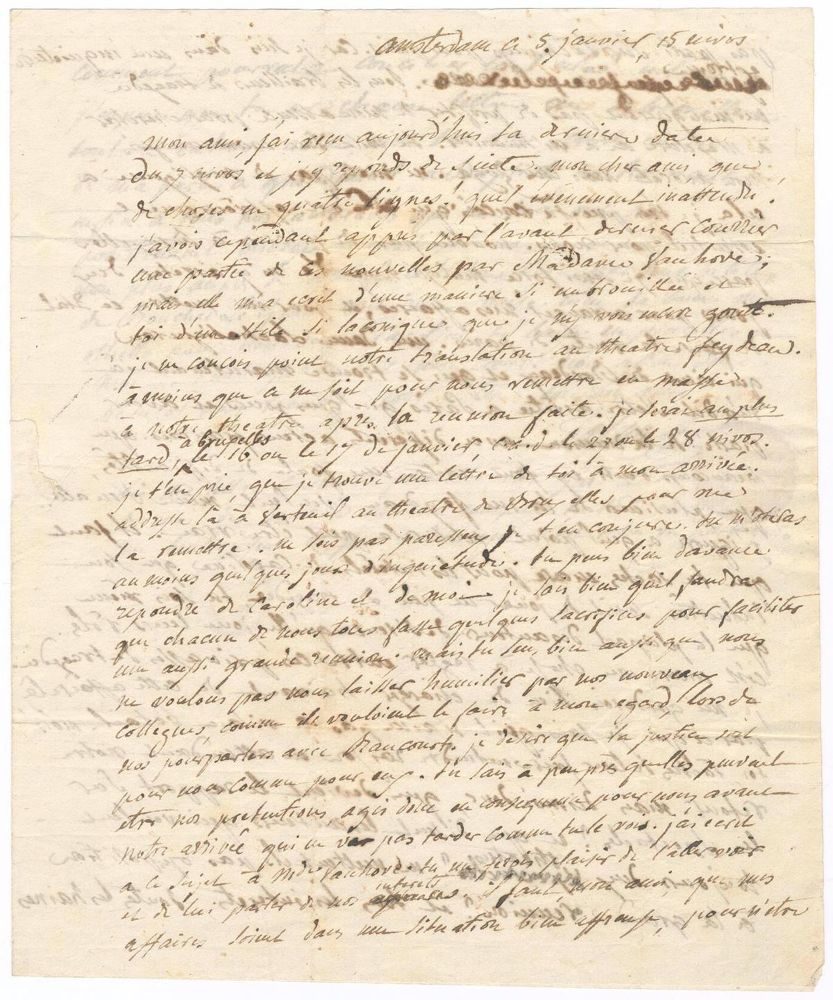 amsterdam ce 5. janvier, 15 nivos
mon ami, j'ai reçu aujourd'hui ta derniere datée
du 7 nivos et j'y reponds de suite. mon cher ami que
de choses en quatre lignes! quel évènement inattendu!
j'avois cependant appris par l'avant dernier courrier
une partie de ces nouvelles par Madame Vanhove;
mais elle m'a ecrit d'une maniere si embrouillée et
toi d'un stile si laconique que je n'y vois goute.
je ne conçois point notre translation au theatre feydeau.
à moins que ce ne soit pour nous remettre en masse
à notre theatre après la reunion faite. je serai au plus
tard, à bruxelles le 16 ou le 17 de janvier, c.a.d. le 27 ou le 28 nivos.
je t'en prie, que je trouve une lettre de toi à mon arrivée.
addresse là à Verteuil au theatre de Bruxelles pour me
la remettre. ne sois pas paresseux je t'en conjure. tu m'oteras
au moins quelques jours d'inquietudes. tu peux bien d'avance
repondre de Caroline et de moi je sais bien qu'il faudra
que chacun de nous tous fasse quelques sacrifices pour faciliter
une aussi grande reunion. mais tu sens bien aussi que nous
ne voulons pas nous laisser humilier par nos nouveaux
collegues comme ils vouloient le faire à mon egard, lors de
nos pourparlers avec Raucourt. je desire que la justice soit
pour nous comme pour eux. tu sais à peu près quelles peuvent
etre nos pretentions agis donc en consequence pour nous avant
notre arrivée qui ne va pas tarder comme tu le vois. j'ai ecrit
a ce sujet à mde Vanhove. tu me ferois plaisir de l'aller voir
et de lui parler de nos interets il faut, mon ami, que mes
affaires soient dans une situation bien affreuse, pour n'etre